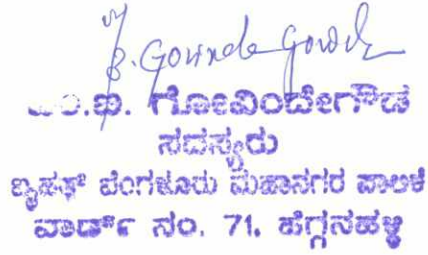 B. Govinde Gowda
ಎಂ.ಬಿ. ಗೋವಿಂದೇಗೌಡ
ಸದಸ್ಯರು
ಬೃಹತ್ ಬೆಂಗಳೂರು ಮಹಾನಗರ ಪಾಲಿಕೆ
ವಾರ್ಡ್ ನಂ. 71. ಹೆಗ್ಗನಹಳ್ಳಿ